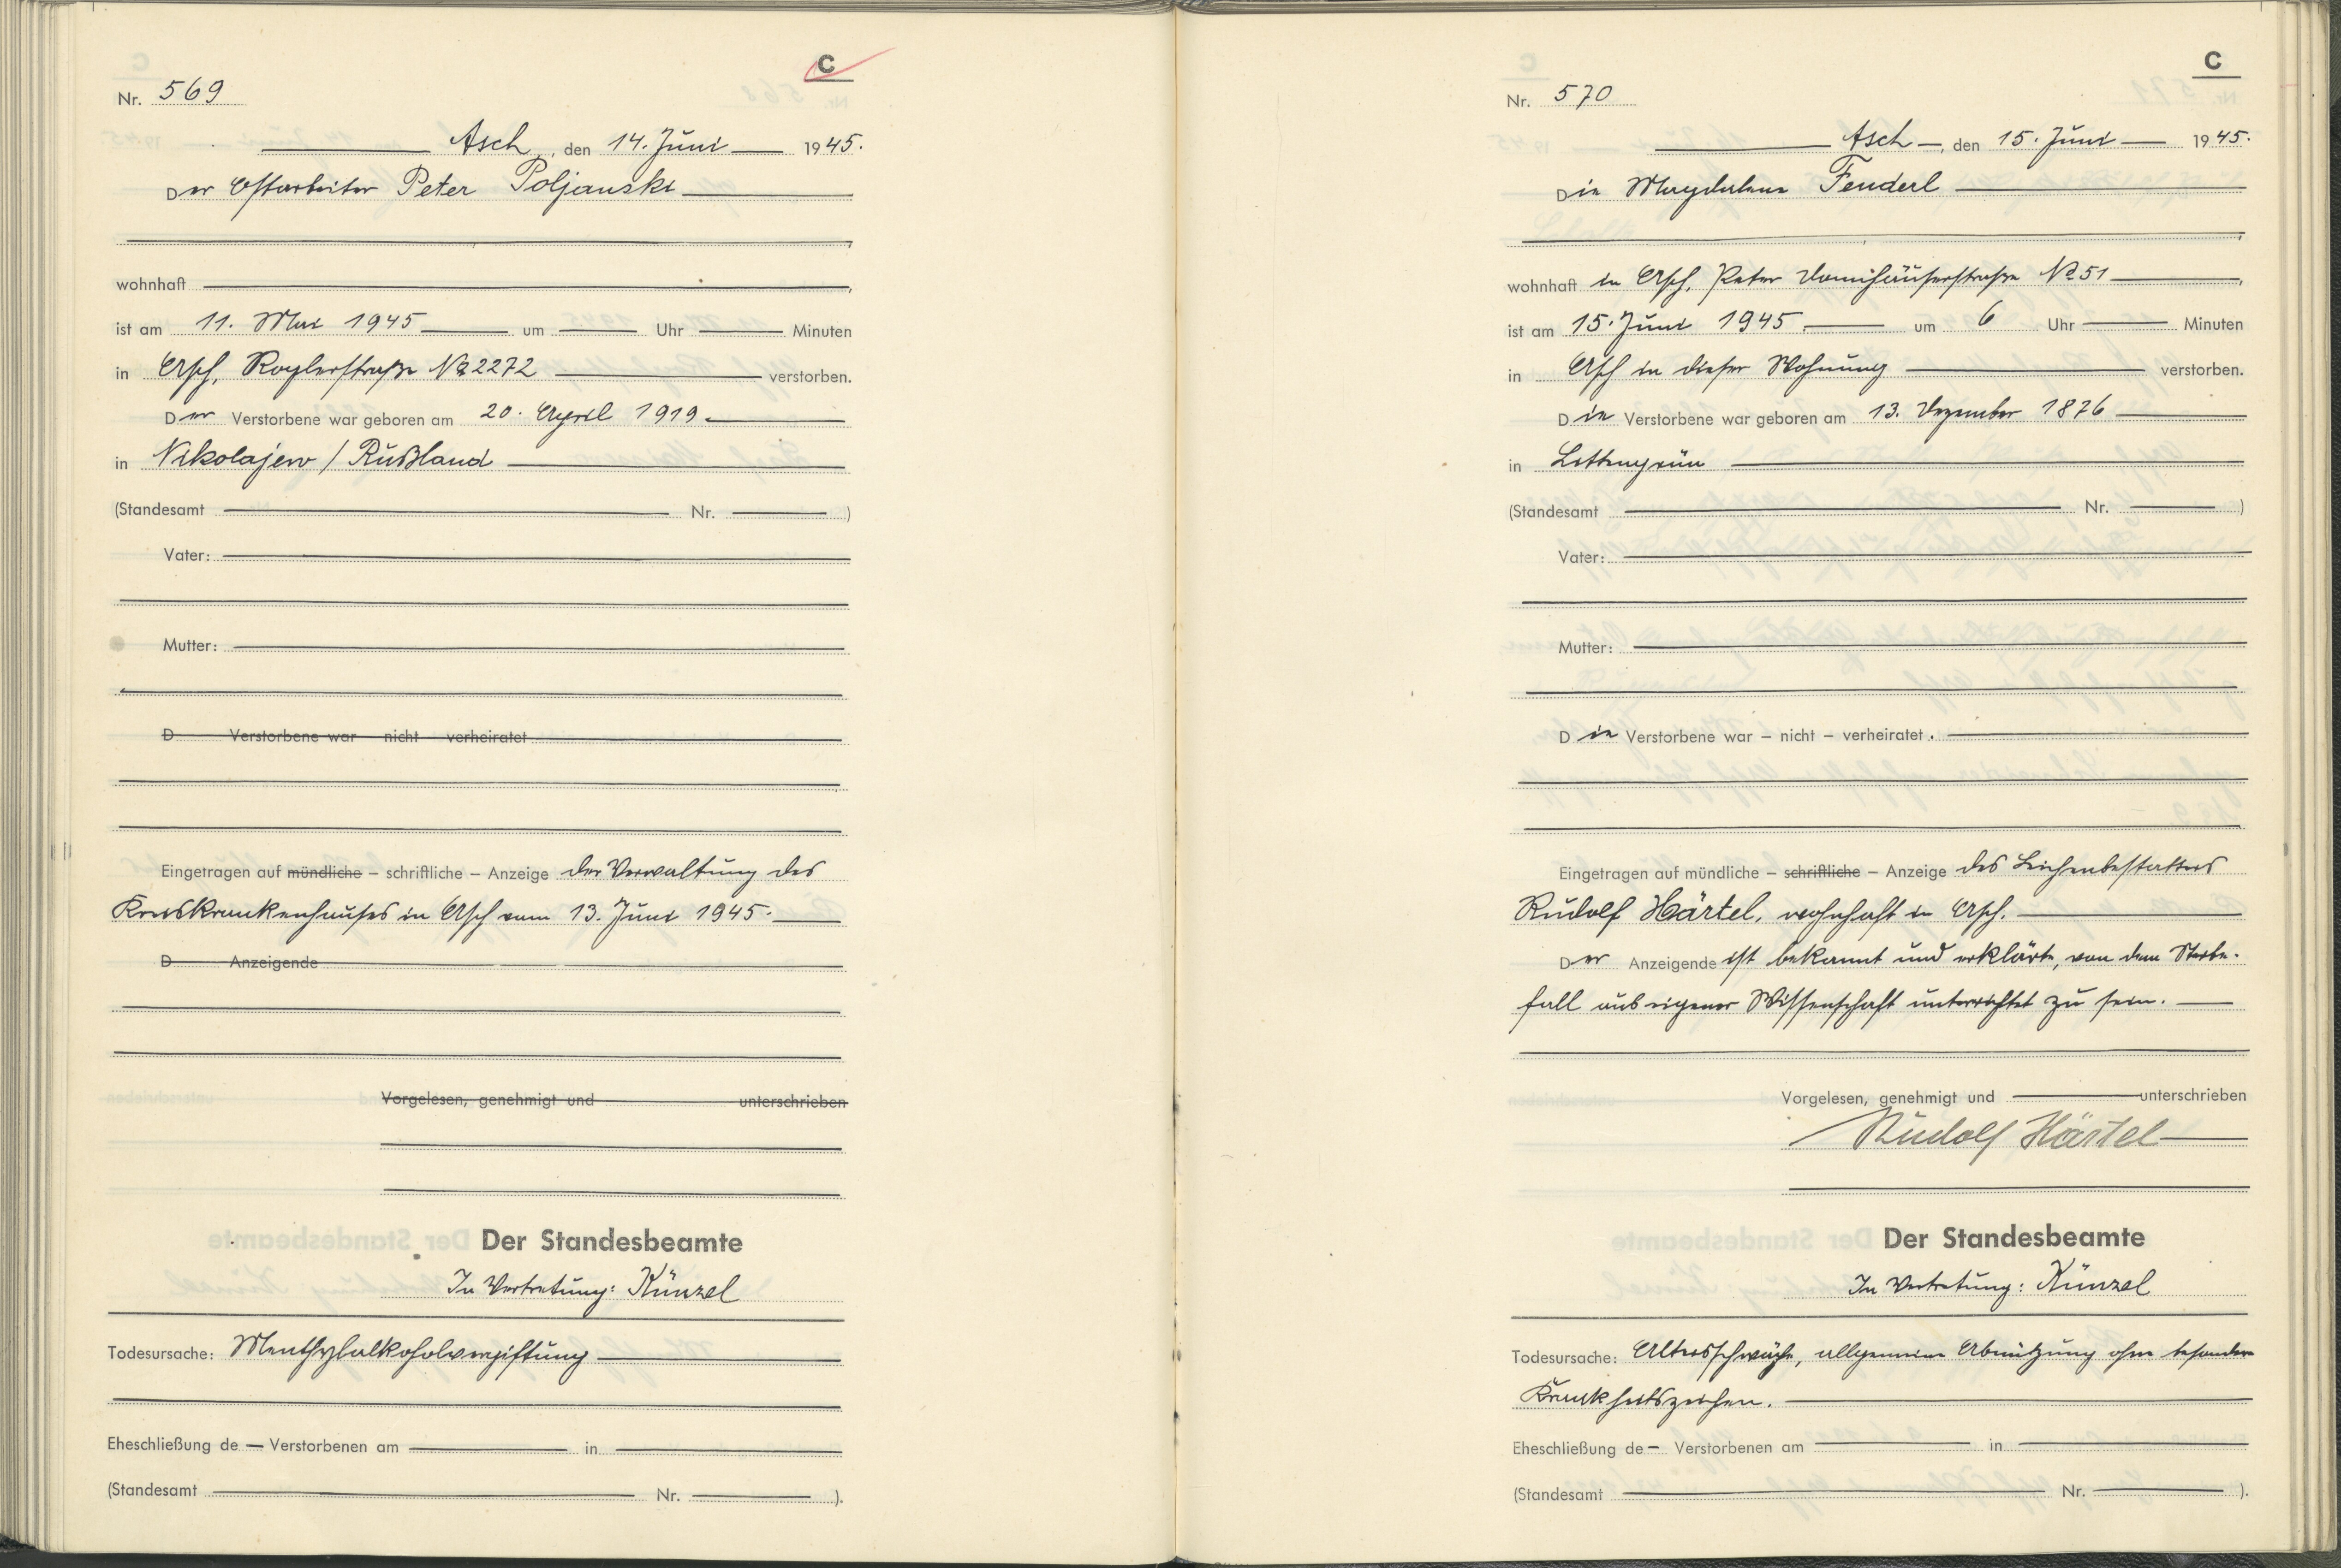 C
Nr. 569
Asch, den 14. Juni 1945.
Der Ostarbeiter Peter Poljanski
wohnhaft
ist am 11. Mai 1945 um Uhr Minuten
in Asch, Roglerstraße № 2272 verstorben.
Der Verstorbene war geboren am 20. April 1919.
in Nikolajew / Rußland
(Standesamt Nr. )
Vater:
Mutter:
D Verstorbene war nicht verheiratet
Eingetragen auf mündliche – schriftliche – Anzeige der Verwaltung des
Kreiskrankenhauses in Asch vom 13. Juni 1945.
D Anzeigende
Vorgelesen, genehmigt und unterschrieben
Der Standesbeamte
In Vertretung: Künzel
Todesursache: Menthylalkoholvergiftung
Eheschließung de Verstorbenen am in
(Standesamt Nr. ).
C
Nr. 570
Asch, den 15. Juni 1945.
Die Magdalena Fenderl
wohnhaft in Asch, Peter Donnhäuserstraße № 51,
ist am 15. Juni 1945 um 6 Uhr Minuten
in Asch in dieser Wohnung verstorben.
Die Verstorbene war geboren am 13. Dezember 1876
in Littengrün
(Standesamt Nr. )
Vater:
Mutter:
Die Verstorbene war – nicht – verheiratet.
Eingetragen auf mündliche – schriftliche – Anzeige des Leichenbestatters
Rudolf Härtel, wohnhaft in Asch.
Der Anzeigende ist bekannt und erklärte, von dem Sterbe-
fall aus eigener Wissenschaft unterrichtet zu sein.
Vorgelesen, genehmigt und unterschrieben
Rudolf Härtel
Der Standesbeamte
In Vertretung: Künzel
Todesursache: Altersschwäche, allgemeine Abnützung ohne besondere
Krankheitszeichen.
Eheschließung de Verstorbenen am in
(Standesamt Nr. ).